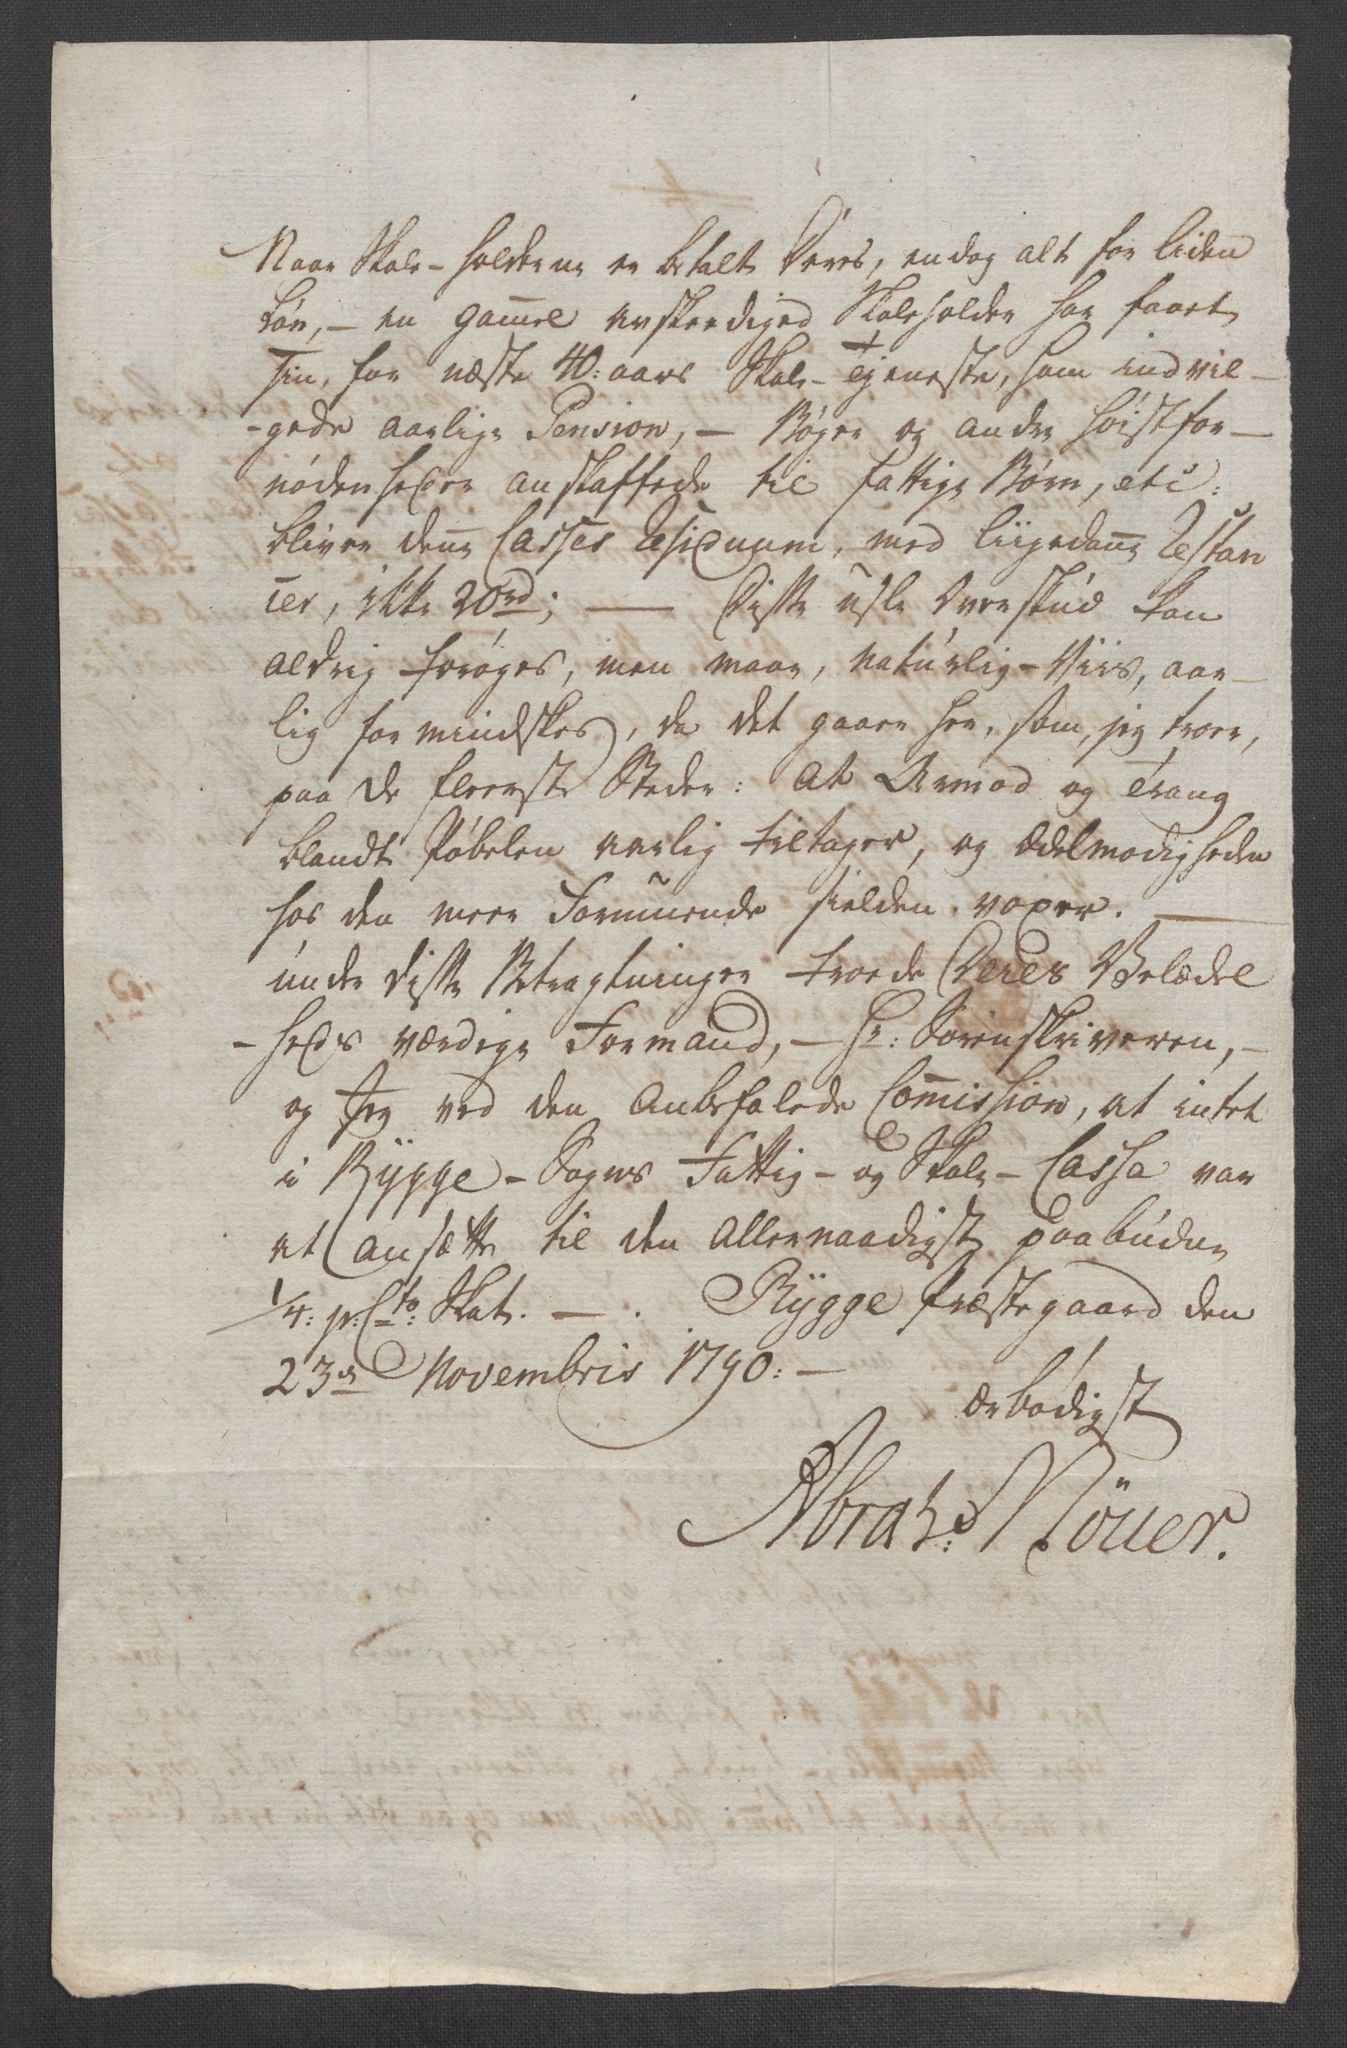 Naar Skole-holderne er betalt deres, endog alt for liden
Løn, - en gam̄el avskediged Skoleholder har faaet
sin, for næste 40: aars Skole-Tjeneste, ham indvil-
-gede aarlige Pension, - Bøger og andre høistfor-
nødenheder anskaffede til fattige Børn, etc:
bliver den̄e Casses Residuum, med liigedan̄e Restan
cer, ikke 20rd; — Disse usle Overskud kan
aldrig forøges, men maae, naturlig-Viis, aar-
lig formindskes, da det gaaer her, som, jeg troer,
paa de fleeste Steder: at Armod og Trang
blandt Pøbelen aarlig tiltager, og Ædelmodigheden
hos den meer Formuende sielden voxer. —
under disse Betragtninger troede Deres Velædel
-heds værdige Formand, - Hr: Sorenskriveren, -
og Jeg ved den anbefalede Com̄ission, at intet
i Rygge-Sogns Fattig- og Skole-Cassa var
at ansætte til den allernaadigst paabudne
1/4: p: Cto: Skat. — . Rygge Præstegaard den
23de Novembris 1790: —
ærbødigst
Abrah: Nöuer.